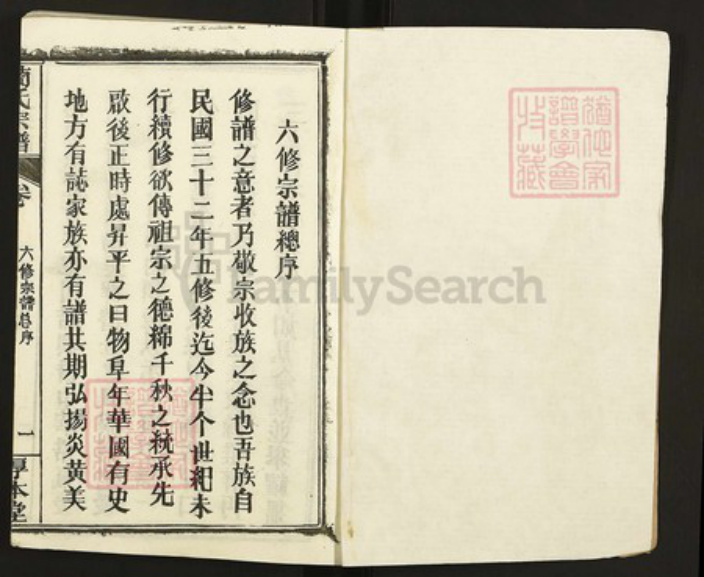 六修宗譜總序
修譜之意者乃敬宗收族之念也吾族自
民國三十二年五修後迄今半个世紀未
行續修欲傳祖宗之德綿千秋之統承先
啟後正時處昇平之日物阜年華國有史
地方有誌家族亦有譜共期弘揚炎黄美
氏宗譜
卷
六修宗譜总序
一
厚本堂
FamilySearch
猶他家
譜學會
收藏